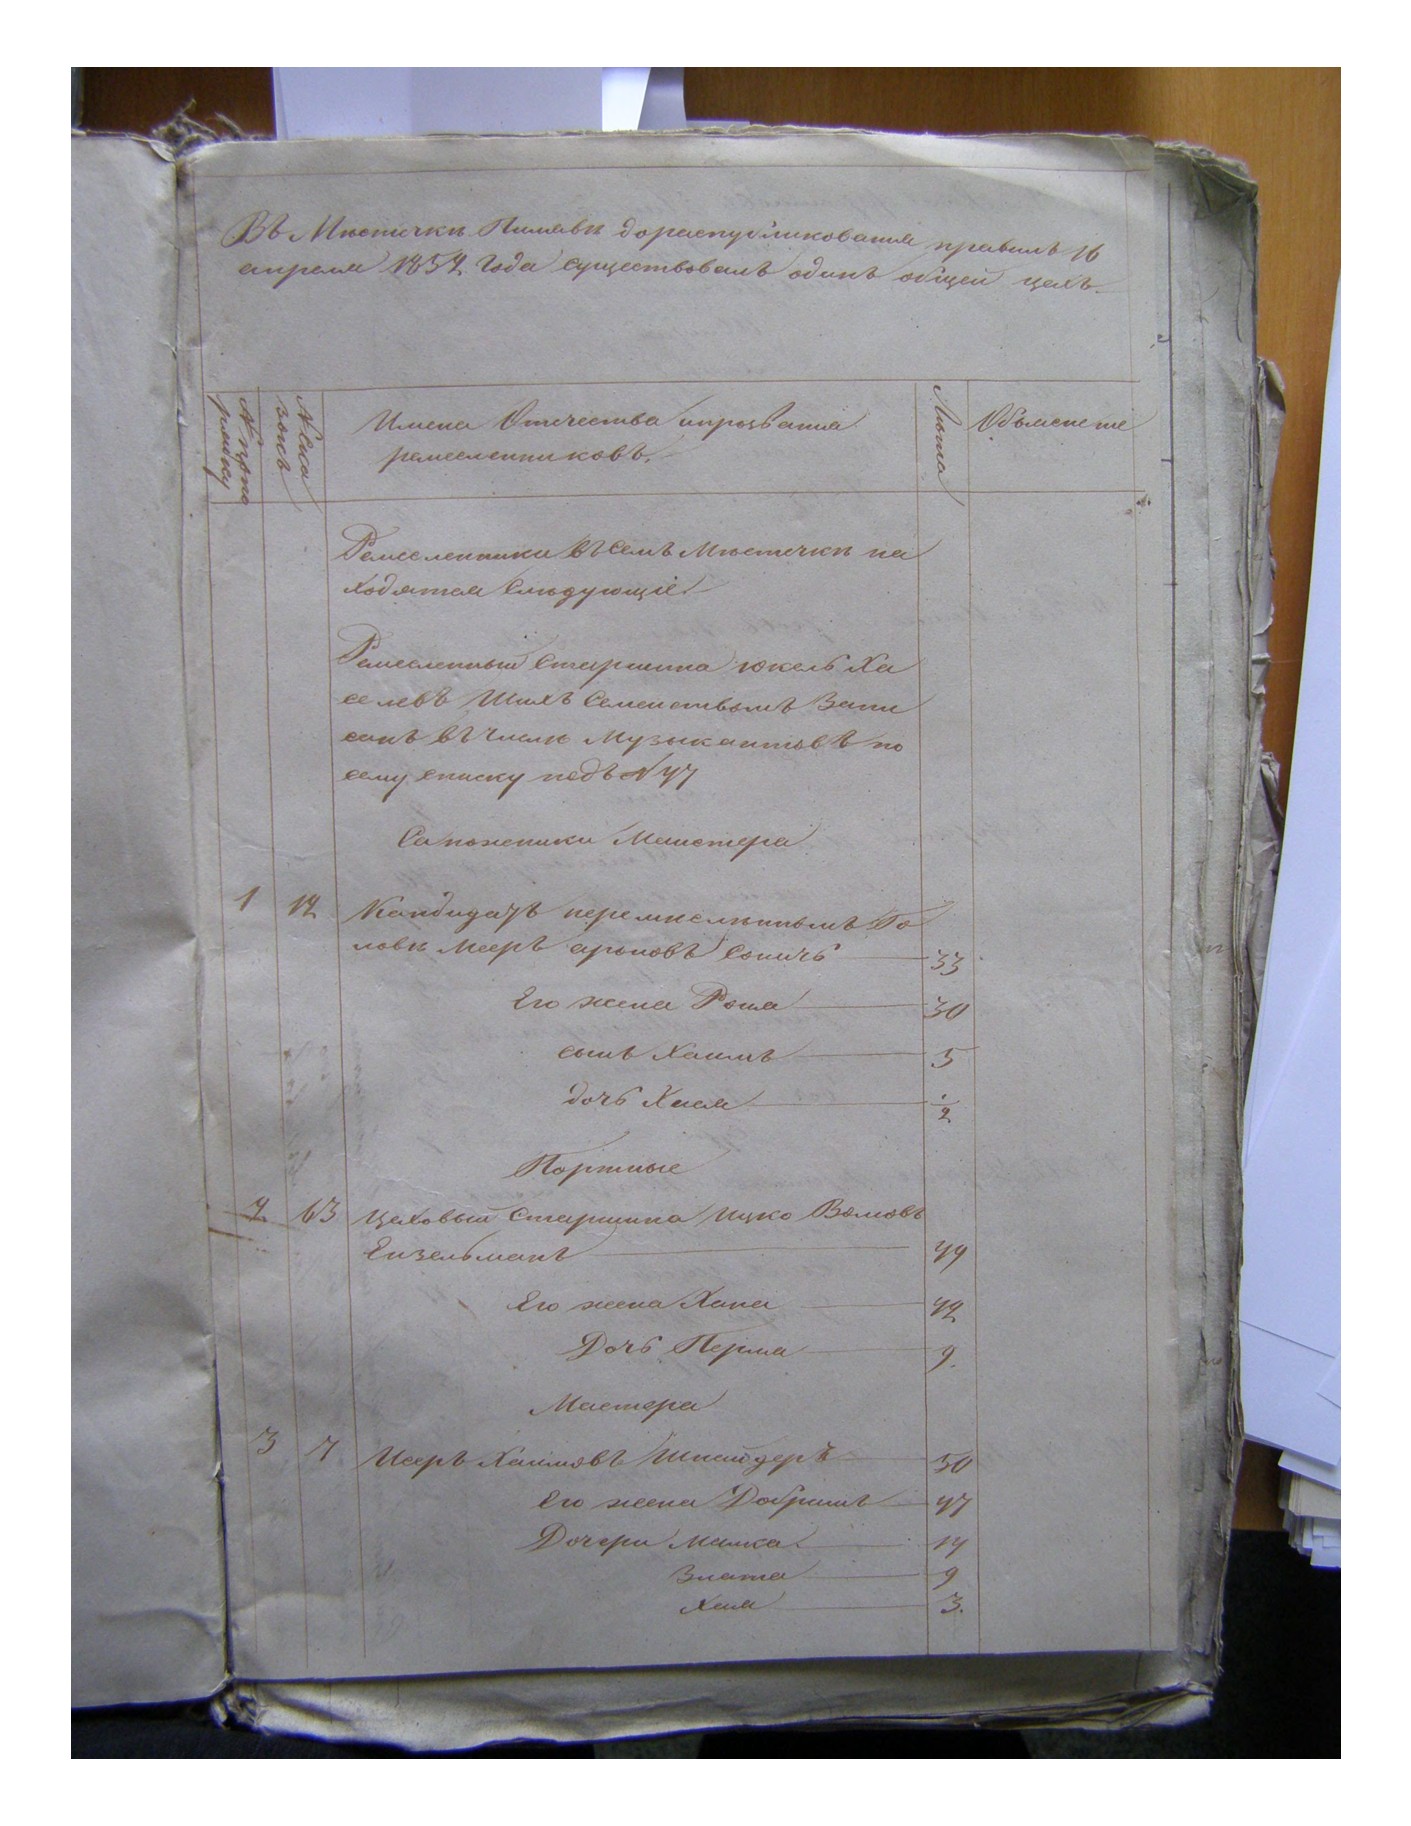 Въ Мѣстечкѣ Пилявѣ дораспубликованія правилъ 16
апреля 1852 года существовалъ одинъ общей цехъ.
№ попо
рядку
№ Сказ
Имена Отчества ипрозванія
ремесленниковъ.
Лѣта
Объясненіе
Ремесленники въ семъ Мѣстечкѣ на
ходятся Слѣдующіе
Ремесленный Старшина Юкель Ха
селевъ Шихъ Семействомъ Запи
санъ въ числѣ Музыкантовъ по
сему списку подъ № 47
Сапожники Маистера
1 12 Кандидатъ Го
ловѣ Мееръ ароновъ 33
Его жена Роиза 30
сынъ Хаимъ 5
дочь Хая 1/2
Портные
2 63 Цеховый Старшина Ицко Волмовъ
Ензельманъ 44
Его жена Хана 42
Дочь Перля 9.
Мастера
3 7 Исеръ Хаимовъ Шнайдеръ 50
Его жена Добришъ 47
Дочери Малка 14
Злата 9
Хая 3.